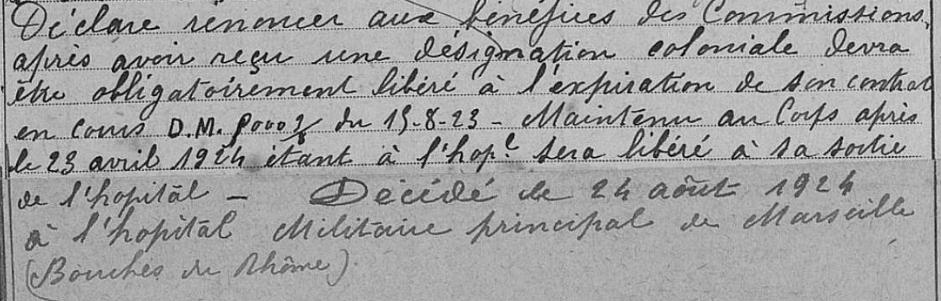 Déclare renoncer aux bénéfices des Commissions,
après avoir reçu une désignation coloniale devra
être obligatoirement libéré à l'expiration de son contrat
en cours D.M. du 15-8-23 - Maintenu au Corps après
le 23 avril 1924 étant à l'hopl. sera libéré à sa sortie
de l'hopital - Décédé le 24 août 1924
à l'hopital Militaire principal de Marseille
(Bouches du Rhôme)